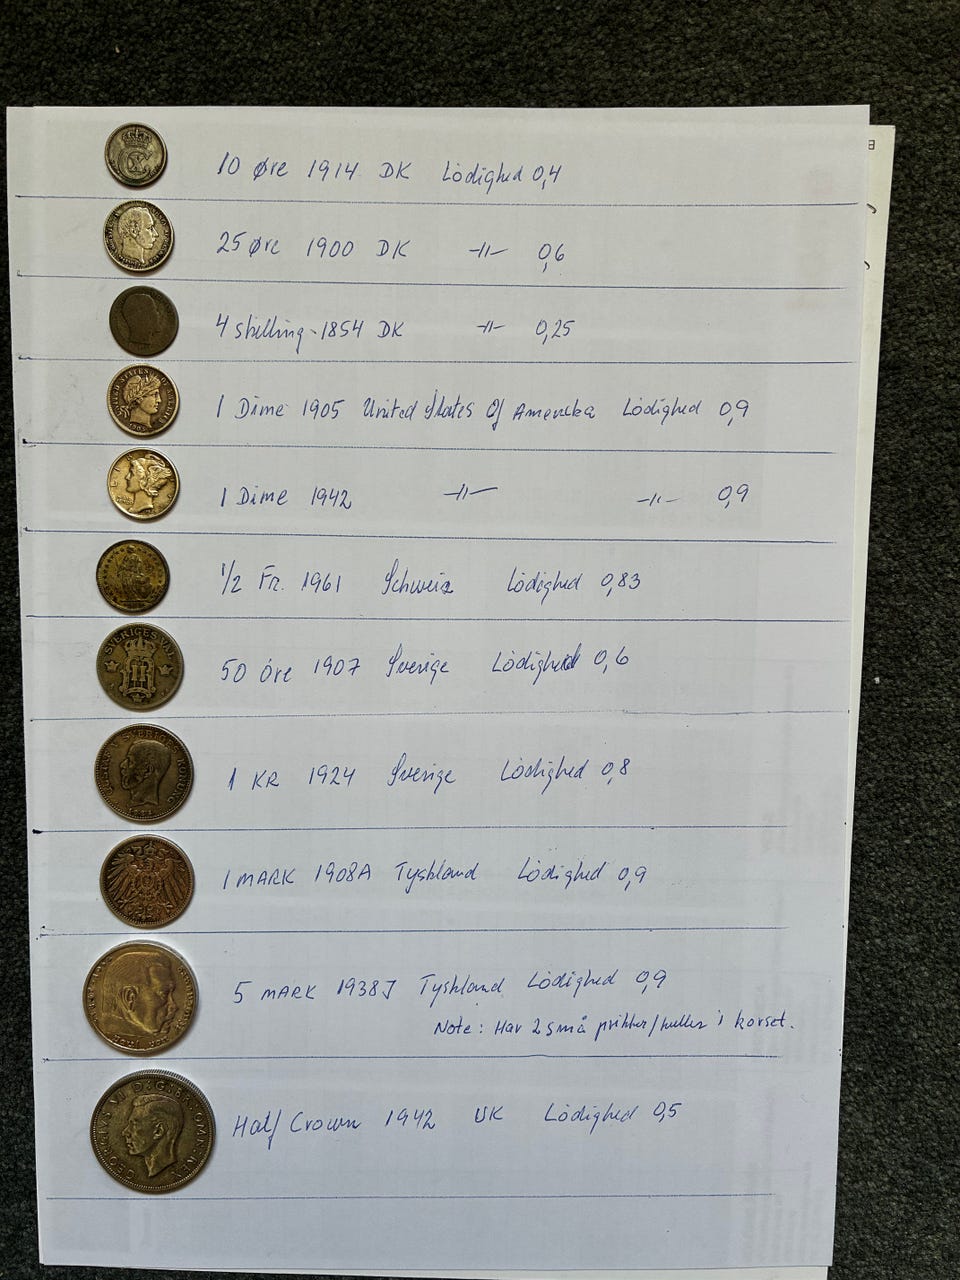 10 Øre 1914 DK Lödighed 0,4
25 Øre 1900 DK -||- 0,6
4 skilling-1854 DK -||- 0,25
UNITED STATES OF AMERICA
1 Dime 1905 United States Of Amerika Lödighed 0,9
1 Dime 1942 -||- -||- 0,9
1/2 Fr. 1961 Schweiz Lödighed 0,83
SVERIGES VÄL
50 öre 1907 Sverige Lödighed 0,6
GUSTAF V SVERIGES KONUNG
1 KR 1924 Sverige Lödighed 0,8
1 MARK 1908A Tyskland Lödighed 0,9
5 MARK 1938J Tyskland Lödighed 0,9
Note: Har 2 små prikker/huller i korset.
GEORGIVS VI D:G:BR:OMN:REX
Half Crown 1942 UK Lödighed 0,5